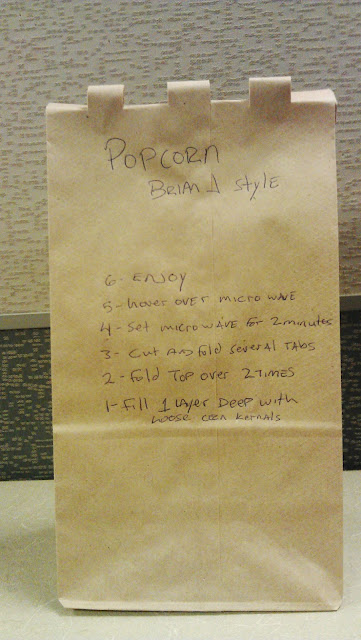 POPCORN
BRIAN J Style
6- ENJOY
5- Hover over microwave
4- Set microwave for 2 minutes
3- Cut AND Fold Several TABS
2- Fold Top over 2 TIMES
1- Fill 1 Layer Deep with
Loose corn Kernals